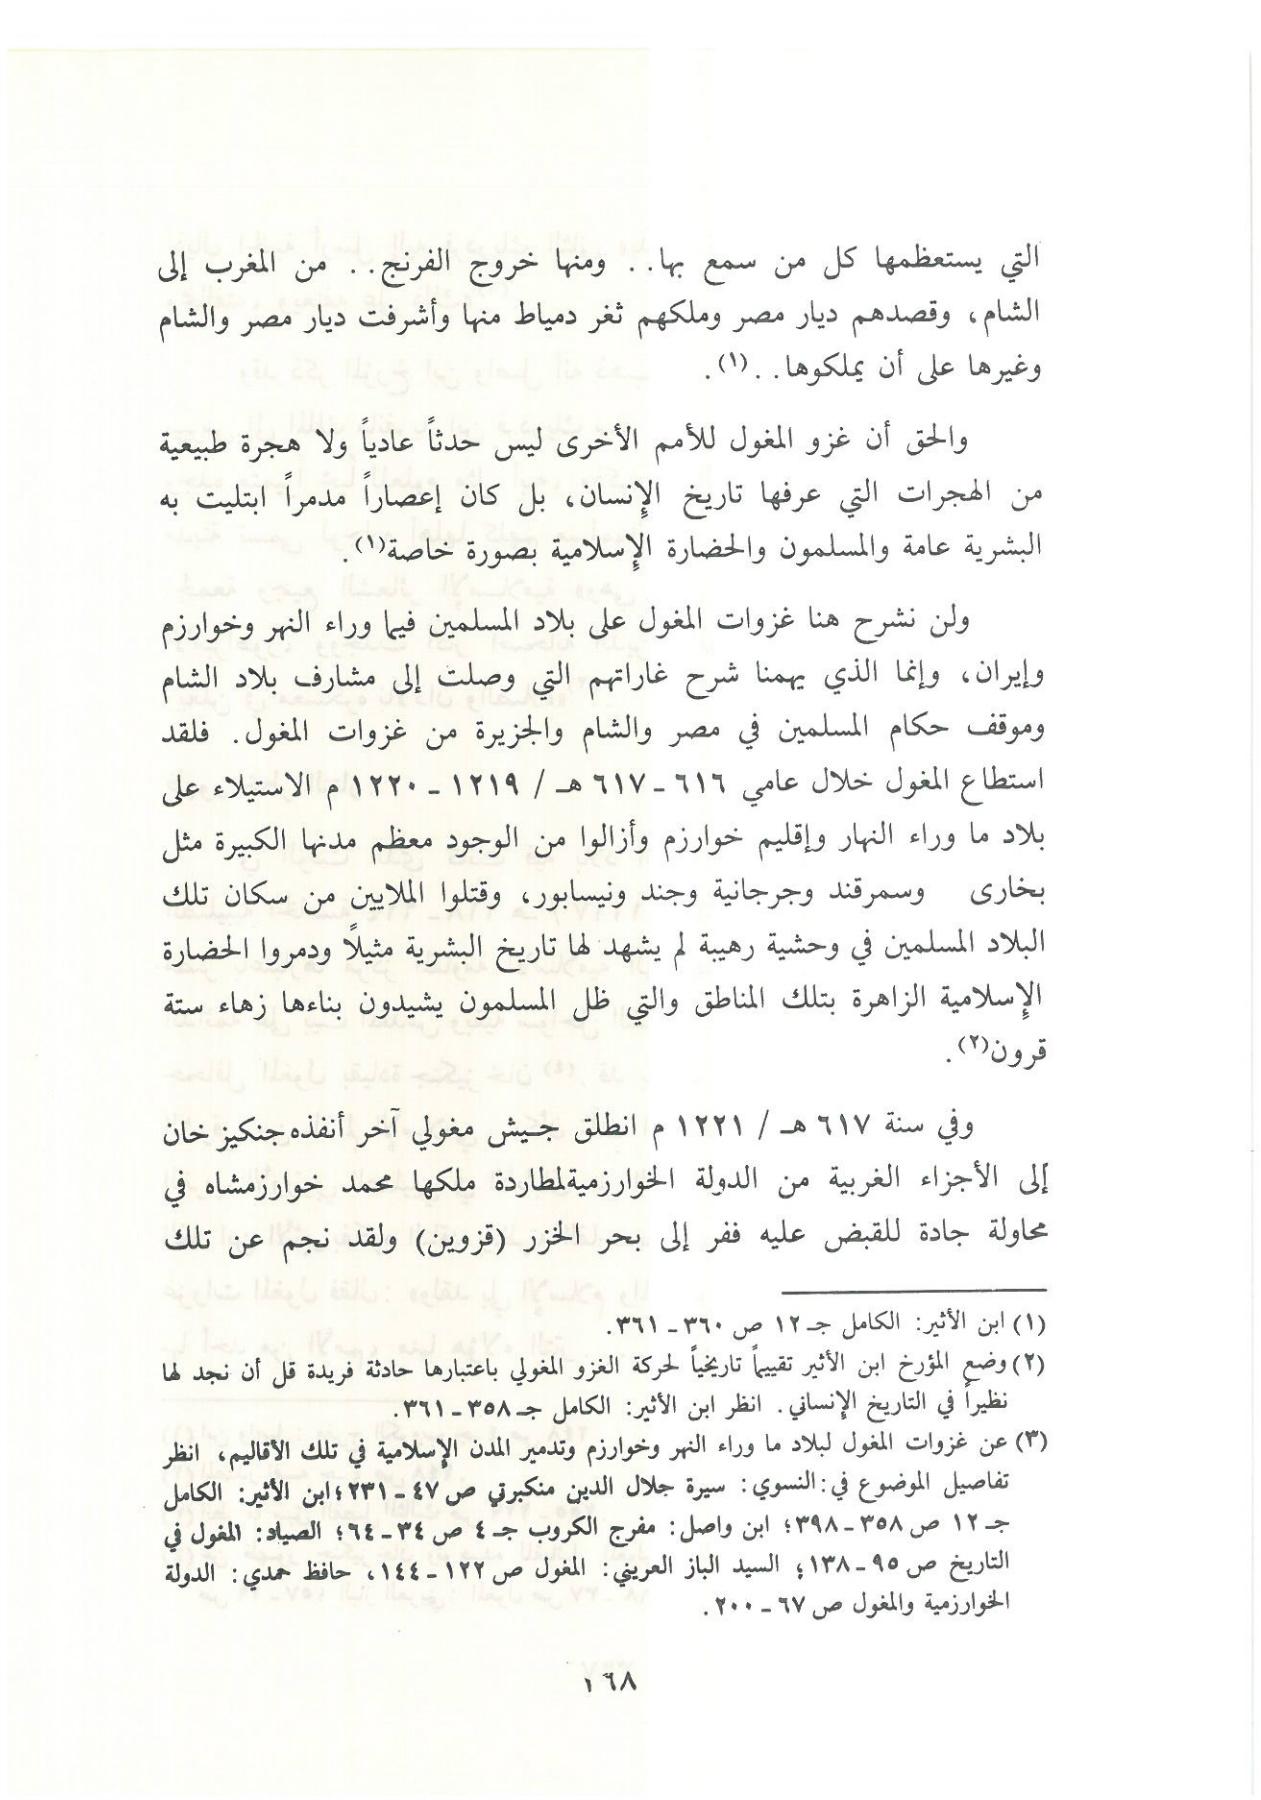 التي يستعظمها كل من سمع بها.. ومنها خروج الفرنج.. من المغرب إلى
الشام، وقصدهم ديار مصر وملكهم ثغر دمياط منها وأشرفت ديار مصر والشام
وغيرها على أن يملكوها..(١).
والحق أن غزو المغول للأمم الأخرى ليس حدثاً عادياً ولا هجرة طبيعية
من الهجرات التي عرفها تاريخ الإنسان، بل كان إعصاراً مدمراً ابتليت به
البشرية عامة والمسلمون والحضارة الإسلامية بصورة خاصة(١).
ولن نشرح هنا غزوات المغول على بلاد المسلمين فيما وراء النهر وخوارزم
وإيران، وإنما الذي يهمنا شرح غاراتهم التي وصلت إلى مشارف بلاد الشام
وموقف حكام المسلمين في مصر والشام والجزيرة من غزوات المغول. فلقد
استطاع المغول خلال عامي ٦١٦ - ٦١٧ هـ / ١٢١٩ - ١٢٢٠ م الاستيلاء على
بلاد ما وراء النهار وإقليم خوارزم وأزالوا من الوجود معظم مدنها الكبيرة مثل
بخارى وسمرقند وجرجانية وجند ونيسابور، وقتلوا الملايين من سكان تلك
البلاد المسلمين في وحشية رهيبة لم يشهد لها تاريخ البشرية مثيلاً ودمروا الحضارة
الإسلامية الزاهرة بتلك المناطق والتي ظل المسلمون يشيدون بناءها زهاء ستة
قرون(٢).
وفي سنة ٦١٧ هـ / ١٢٢١ م انطلق جيش مغولي آخر أنفذه جنكيز خان
إلى الأجزاء الغربية من الدولة الخوارزمية لمطاردة ملكها محمد خوارزمشاه في
محاولة جادة للقبض عليه ففر إلى بحر الخزر (قزوين) ولقد نجم عن تلك
(١) ابن الأثير: الكامل جـ ١٢ ص ٣٦٠ - ٣٦١.
(٢) وضع المؤرخ ابن الأثير تقييماً تاريخياً لحركة الغزو المغولي باعتبارها حادثة فريدة قل أن نجد لها
نظيراً في التاريخ الإنساني. انظر ابن الأثير: الكامل جـ ٣٥٨ - ٣٦١.
(٣) عن غزوات المغول لبلاد ما وراء النهر وخوارزم وتدمير المدن الإسلامية في تلك الأقاليم، انظر
تفاصيل الموضوع في: النسوي: سيرة جلال الدين منكبرتي ص ٤٧ - ٢٣١؛ ابن الأثير: الكامل
جـ ١٢ ص ٣٥٨ - ٣٩٨؛ ابن واصل: مفرج الكروب جـ ٤ ص ٣٤ - ٦٤؛ الصياد: المغول في
التاريخ ص ٩٥ - ١٣٨؛ السيد الباز العريني: المغول ص ١٢٢ - ١٤٤، حافظ حمدي: الدولة
الخوارزمية والمغول ص ٦٧ - ٢٠٠.
١٦٨